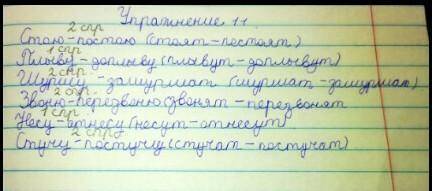 Упражнение 11.
2 спр
Стою - постою (стоят - постоят)
1 спр
Плыву - доплыву (плывут - доплывут)
2 спр
Шуршу - зашуршат (шуршат - зашуршат)
2 спр.
Звоню - перезвоню (звонят - перезвонят
1 спр
Несу - отнесу (несут - отнесут)
2 спр
Стучу - постучу (стучат - постучат)